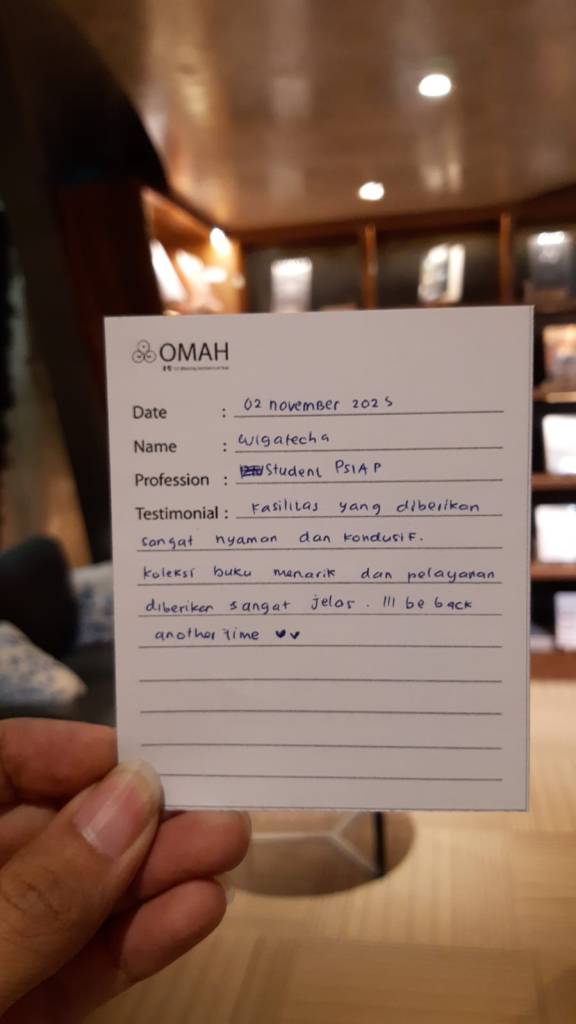 OMAH
Date : 02 november 2025
Name : wigatecha
Profession : Student PSIAP
Testimonial : Fasilitas yang diberikan
sangat nyaman dan kondusif.
koleksi buku menarik dan pelayanan
diberikan sangat jelas. I'll be back
another time ♥♥